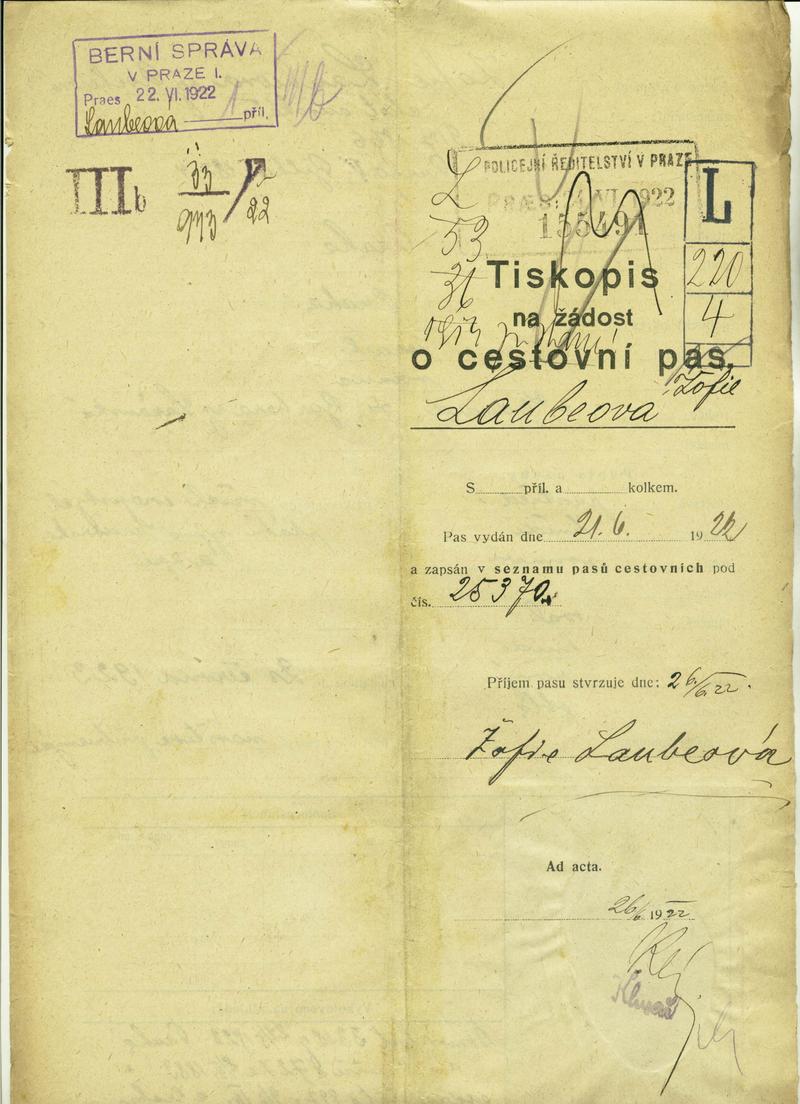 BERNÍ SPRÁVA
V PRAZE I.
Praes 22. VI. 1922
Laubeova 1 příl.
IIIb
POLICEJNÍ ŘEDITELSTVÍ V PRAZE
PRAES: 24. VI. 1922
155491
L
220
4
L
53
36
Tiskopis
na žádost
o cestovní pas.
Laubeova Žofie
S příl. a kolkem.
Pas vydán dne 21. 6. 1922
a zapsán v seznamu pasů cestovních pod
čís. 25370.
Příjem pasu stvrzuje dne: 26/6. 22.
Žofie Laubeová
Ad acta.
26/6 1922